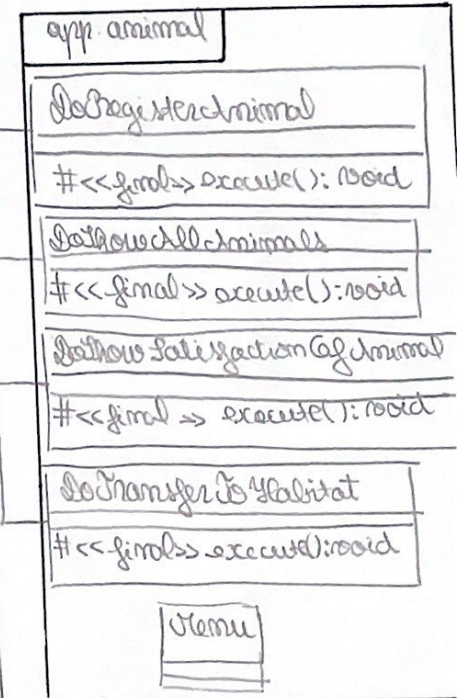 app.animal
DoRegisterAnimal
#<<final>> execute(): void
DoShowAllAnimals
#<<final>> execute(): void
DoShowSatisfactionOfAnimal
#<<final>> execute(): void
DoTransferToHabitat
#<<final>> execute(): void
Menu